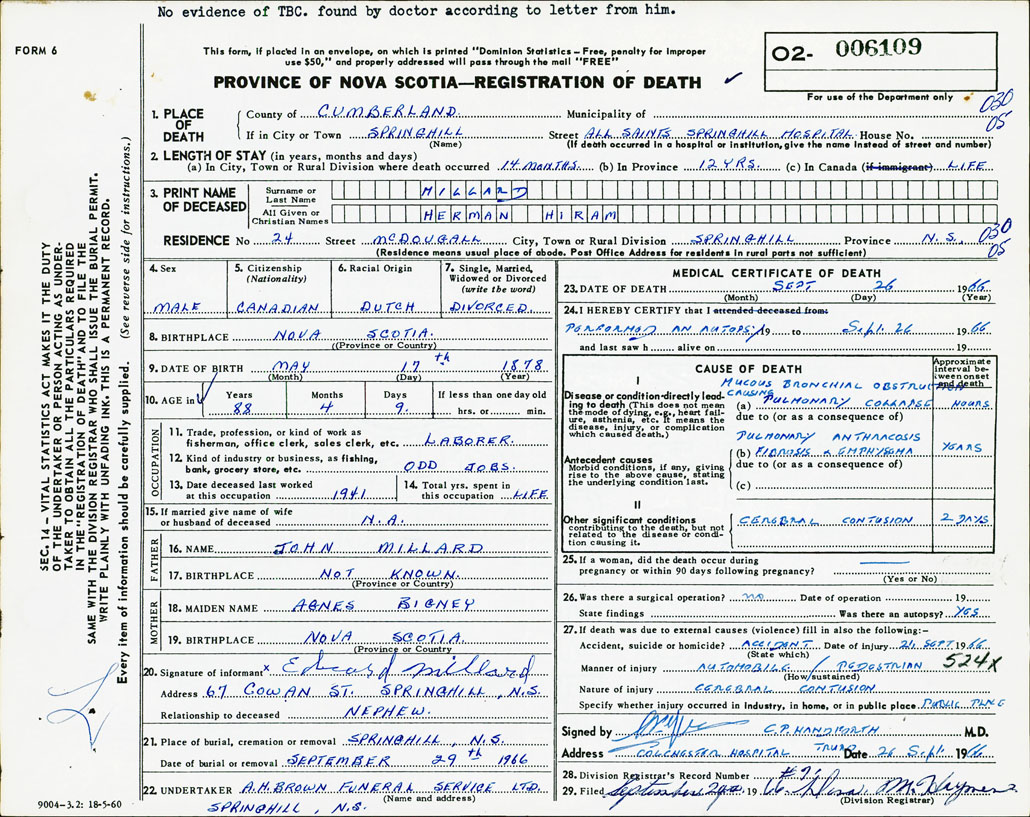 No evidence of TBC. found by doctor according to letter from him.
FORM 6
This form, if placed in an envelope, on which is printed "Dominion Statistics – Free, penalty for improper
use $50," and properly addressed will pass through the mail "FREE"
O2- 006109
PROVINCE OF NOVA SCOTIA—REGISTRATION OF DEATH ✓
For use of the Department only
030
05
1. PLACE OF DEATH
County of CUMBERLAND Municipality of
If in City or Town SPRINGHILL Street ALL SAINTS SPRINGHILL HOSPITAL House No.
(Name) (If death occurred in a hospital or institution, give the name instead of street and number)
2. LENGTH OF STAY (in years, months and days)
(a) In City, Town or Rural Division where death occurred 14 MONTHS. (b) In Province 12 YRS. (c) In Canada (if immigrant) LIFE
3. PRINT NAME OF DECEASED
Surname or Last Name MILLARD
All Given or Christian Names HERMAN HIRAM
RESIDENCE No 24 Street MCDOUGALL City, Town or Rural Division SPRINGHILL Province N.S. 030
05
(Residence means usual place of abode. Post Office Address for residents in rural parts not sufficient)
4. Sex MALE
5. Citizenship (Nationality) CANADIAN
6. Racial Origin DUTCH
7. Single, Married, Widowed or Divorced (write the word) DIVORCED
8. BIRTHPLACE NOVA SCOTIA
(Province or Country)
9. DATE OF BIRTH MAY 17th 1878
(Month) (Day) (Year)
10. AGE in Years 88 Months 4 Days 9. If less than one day old hrs. or min.
OCCUPATION
11. Trade, profession, or kind of work as
fisherman, office clerk, sales clerk, etc. LABORER.
12. Kind of industry or business, as fishing,
bank, grocery store, etc. ODD JOBS.
13. Date deceased last worked
at this occupation 1941
14. Total yrs. spent in
this occupation LIFE
15. If married give name of wife
or husband of deceased N.A.
FATHER
16. NAME JOHN MILLARD
17. BIRTHPLACE NOT KNOWN.
(Province or Country)
MOTHER
18. MAIDEN NAME AGNES BIGNEY
19. BIRTHPLACE NOVA SCOTIA
(Province or Country)
20. Signature of informant x Edward Millard
Address 67 COWAN ST. SPRINGHILL, N.S.
Relationship to deceased NEPHEW.
21. Place of burial, cremation or removal SPRINGHILL, N.S.
Date of burial or removal SEPTEMBER 29th 1966
22. UNDERTAKER A.H. BROWN FUNERAL SERVICE LTD.
(Name and address)
SPRINGHILL, N.S.
MEDICAL CERTIFICATE OF DEATH
23. DATE OF DEATH SEPT 26 1966
(Month) (Day) (Year)
24. I HEREBY CERTIFY that I attended deceased from:
PERFORMED AN AUTOPSY 19 to Sept. 26 1966
and last saw h alive on 19
CAUSE OF DEATH
Approximate interval between onset and death
I
Disease or condition directly leading to death (This does not mean the mode of dying, e.g., heart failure, asthenia, etc. It means the disease, injury, or complication which caused death.)
MUCOUS BRONCHIAL OBSTRUCTION
CAUSING
(a) PULMONARY COLLAPSE HOURS
due to (or as a consequence of)
PULMONARY ANTHRACOSIS
Antecedent causes
Morbid conditions, if any, giving rise to the above cause, stating the underlying condition last.
(b) FIBROSIS & EMPHYSEMA YEARS
due to (or as a consequence of)
(c)
II
Other significant conditions contributing to the death, but not related to the disease or condition causing it.
CEREBRAL CONTUSION 2 DAYS
25. If a woman, did the death occur during
pregnancy or within 90 days following pregnancy?
(Yes or No)
26. Was there a surgical operation? no Date of operation 19
State findings Was there an autopsy? YES
27. If death was due to external causes (violence) fill in also the following:–
Accident, suicide or homicide? ACCIDENT Date of injury 24 SEPT 1966
(State which)
Manner of injury AUTOMOBILE / PEDESTRIAN 524X
(How sustained)
Nature of injury CEREBRAL CONTUSION
Specify whether injury occurred in industry, in home, or in public place PUBLIC PLACE
Signed by C.P. HANDFORTH M.D.
Address COLCHESTER HOSPITAL TRURO Date 26 Sept. 1966
28. Division Registrar's Record Number
29. Filed September 1966
(Division Registrar)
SEC. 14 – VITAL STATISTICS ACT MAKES IT THE DUTY
OF THE UNDERTAKER OR PERSON ACTING AS UNDER-
TAKER TO OBTAIN ALL THE PARTICULARS REQUIRED
IN THE "REGISTRATION OF DEATH" AND TO FILE THE
SAME WITH THE DIVISION REGISTRAR WHO SHALL ISSUE THE BURIAL PERMIT.
WRITE PLAINLY WITH UNFADING INK. THIS IS A PERMANENT RECORD.
Every item of information should be carefully supplied. (See reverse side for instructions.)
9004–3.2: 18-5-60